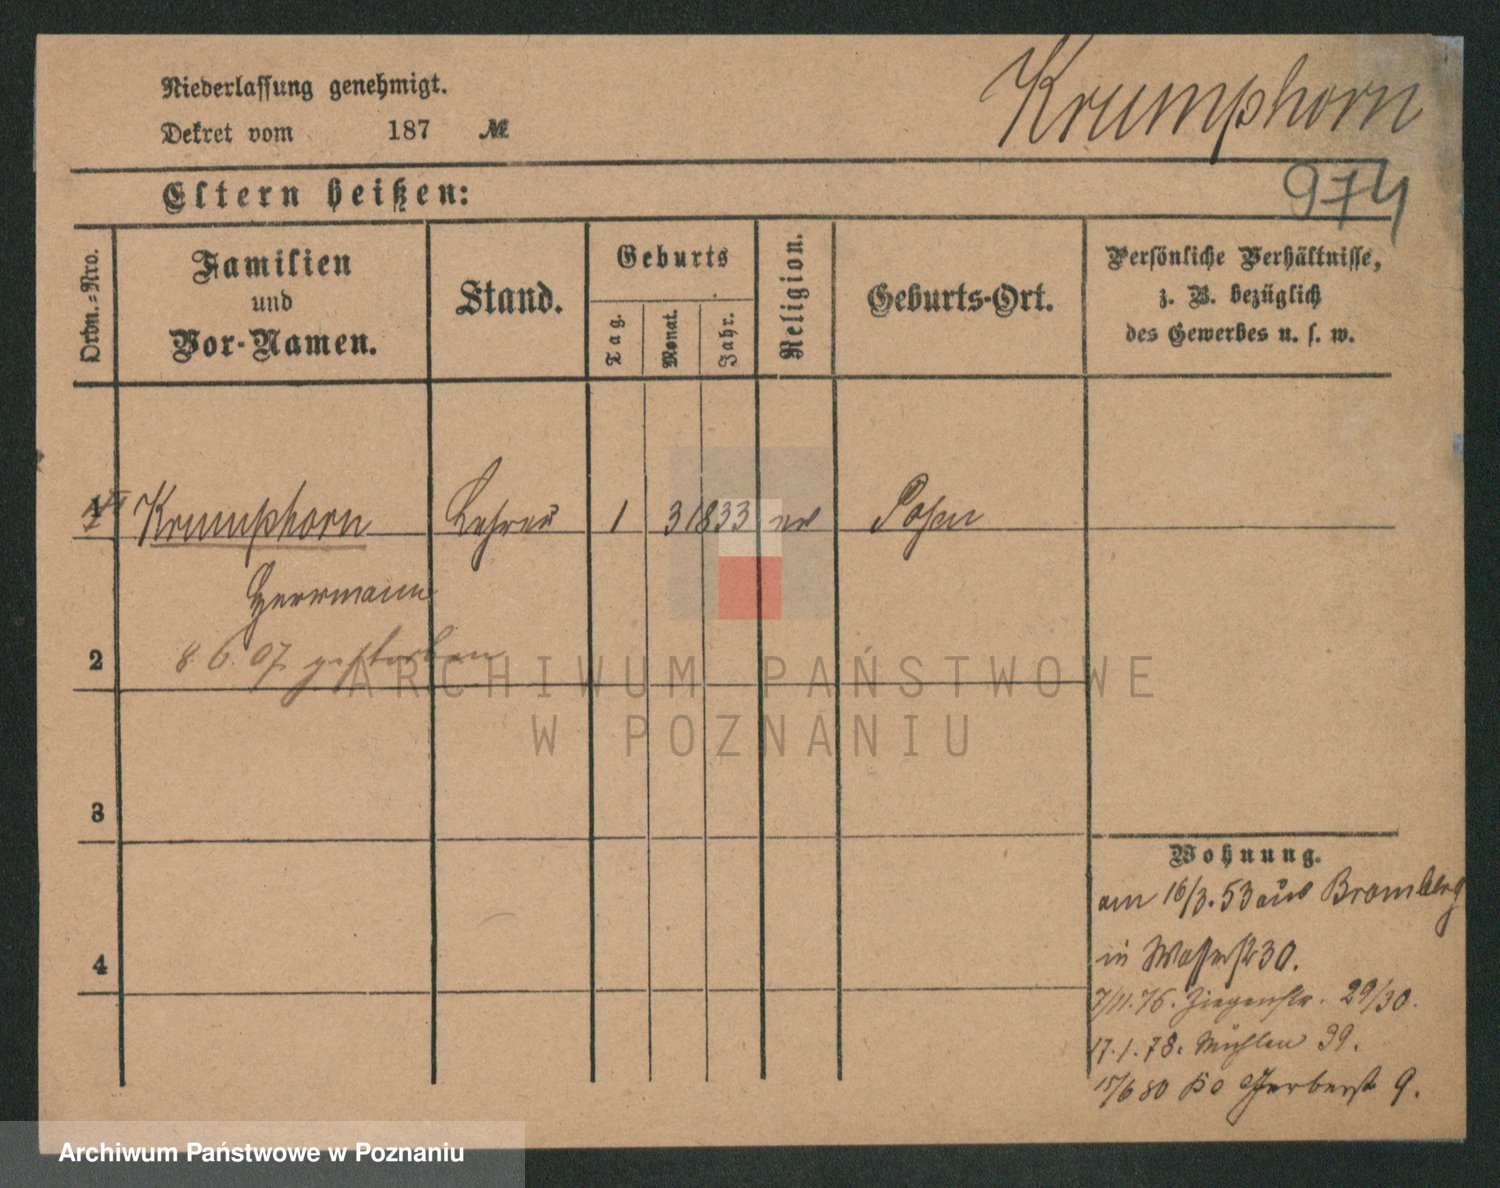 Niederlassung genehmigt.
Krumphorn
Dekret vom 187 №
974
Eltern heißen:
Ordn.=Nro.
Familien
und
Vor-Namen.
Stand.
Geburts
Tag.
Monat.
Jahr.
Religion.
Geburts-Ort.
Persönliche Verhältnisse,
z. B. bezüglich
des Gewerbes u. s. w.
1 Krumphorn Lehrer 1 3 1833 ev Posen
Herrmann
2 8. 6. 07 gestorben
ARCHIWUM PAŃSTWOWE
W POZNANIU
3
4
Wohnung.
am 16/3. 53 aus Bromberg
in Wasserstr 30.
7/11. 76. Ziegenstr. 29/30.
17. 1. 78. Mühlen 39.
15/6 80 Gerberstr 9.
Archiwum Państwowe w Poznaniu